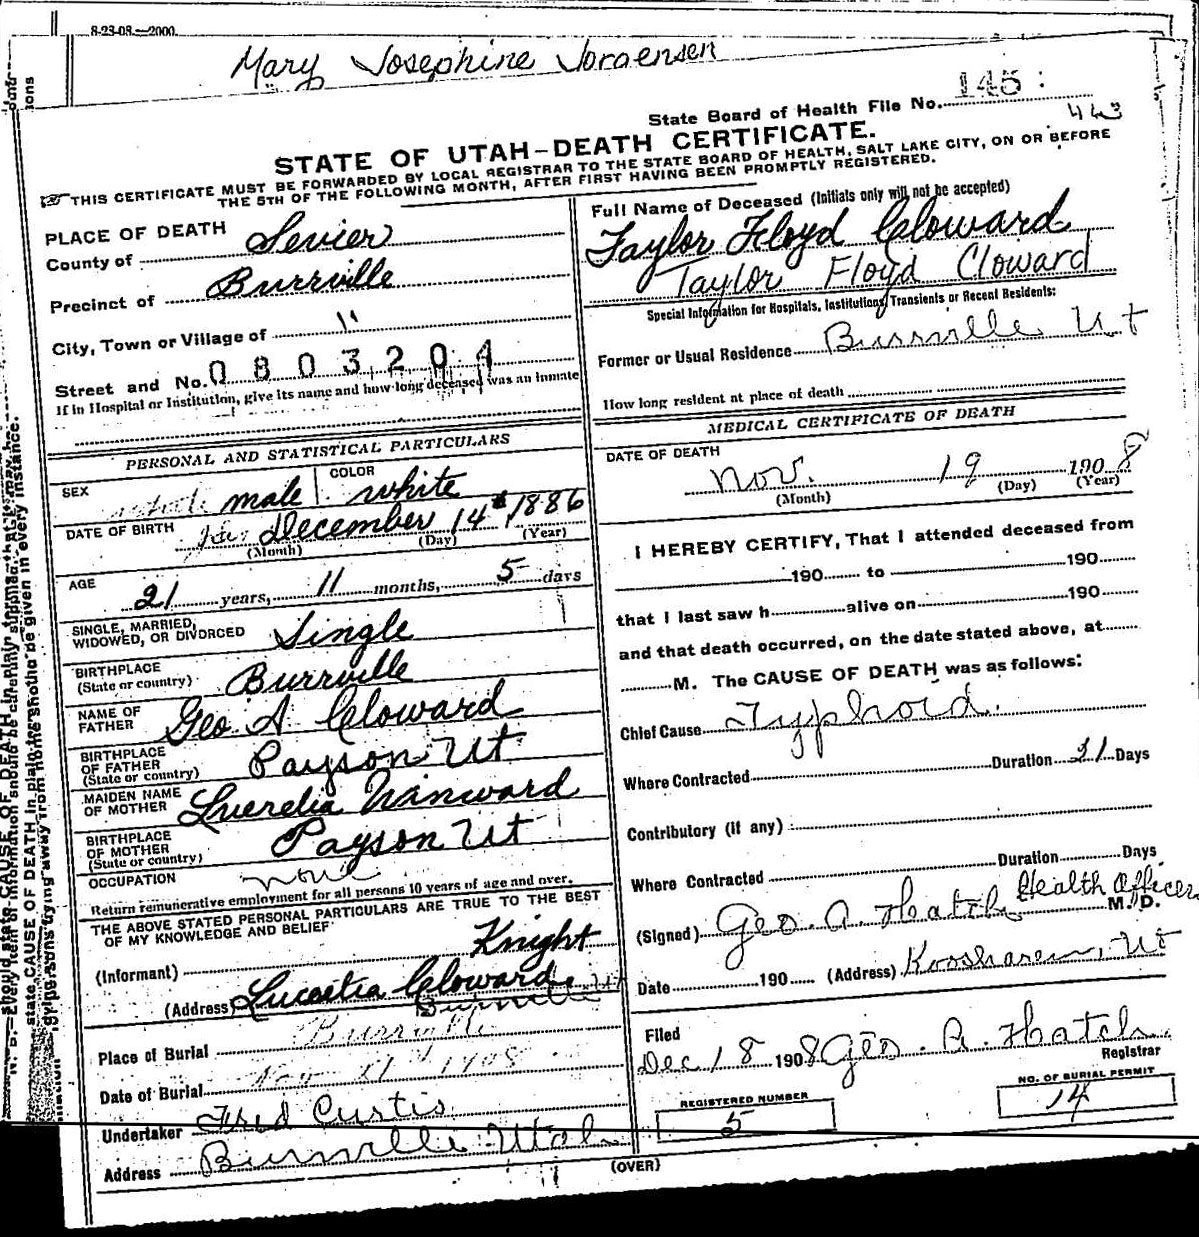 8-23-08.—2000.
Mary Josephine Jorgensen
State Board of Health File No. 145
443
STATE OF UTAH–DEATH CERTIFICATE.
THIS CERTIFICATE MUST BE FORWARDED BY LOCAL REGISTRAR TO THE STATE BOARD OF HEALTH, SALT LAKE CITY, ON OR BEFORE
THE 5TH OF THE FOLLOWING MONTH, AFTER FIRST HAVING BEEN PROMPTLY REGISTERED.
PLACE OF DEATH
County of Sevier
Precinct of Burrville
City, Town or Village of "
Street and No. 0803204
If in Hospital or Institution, give its name and how long deceased was an inmate
PERSONAL AND STATISTICAL PARTICULARS
SEX male COLOR white
DATE OF BIRTH December 14 1886
(Month) (Day) (Year)
AGE 21 years, 11 months, 5 days
SINGLE, MARRIED, WIDOWED, OR DIVORCED Single
BIRTHPLACE (State or country) Burrville
NAME OF FATHER Geo A Cloward
BIRTHPLACE OF FATHER (State or country) Payson Ut
MAIDEN NAME OF MOTHER
BIRTHPLACE OF MOTHER (State or country) Payson Ut
OCCUPATION none
Return remunerative employment for all persons 10 years of age and over.
THE ABOVE STATED PERSONAL PARTICULARS ARE TRUE TO THE BEST
OF MY KNOWLEDGE AND BELIEF
Knight
(Informant)
(Address) Cloward
Burrville Ut
Place of Burial Burrville
Date of Burial Nov 1908
Undertaker Fred Curtis
Address Burrville Utah
Full Name of Deceased (Initials only will not be accepted)
Taylor Floyd Cloward
Taylor Floyd Cloward
Special Information for Hospitals, Institutions, Transients or Recent Residents:
Former or Usual Residence Burrville Ut
How long resident at place of death
MEDICAL CERTIFICATE OF DEATH
DATE OF DEATH
Nov. 19 1908
(Month) (Day) (Year)
I HEREBY CERTIFY, That I attended deceased from
190 to 190
that I last saw h alive on 190
and that death occurred, on the date stated above, at
M. The CAUSE OF DEATH was as follows:
Chief Cause Typhoid.
Where Contracted Duration 21 Days
Contributory (if any)
Where Contracted Duration Days
(Signed) Geo. A. Hatch Health Officer M. D.
Date 190 (Address) Koosharem, Ut
Filed
Dec 18 1908 Geo. A. Hatch
Registrar
REGISTERED NUMBER
5
NO. OF BURIAL PERMIT
14
(OVER)